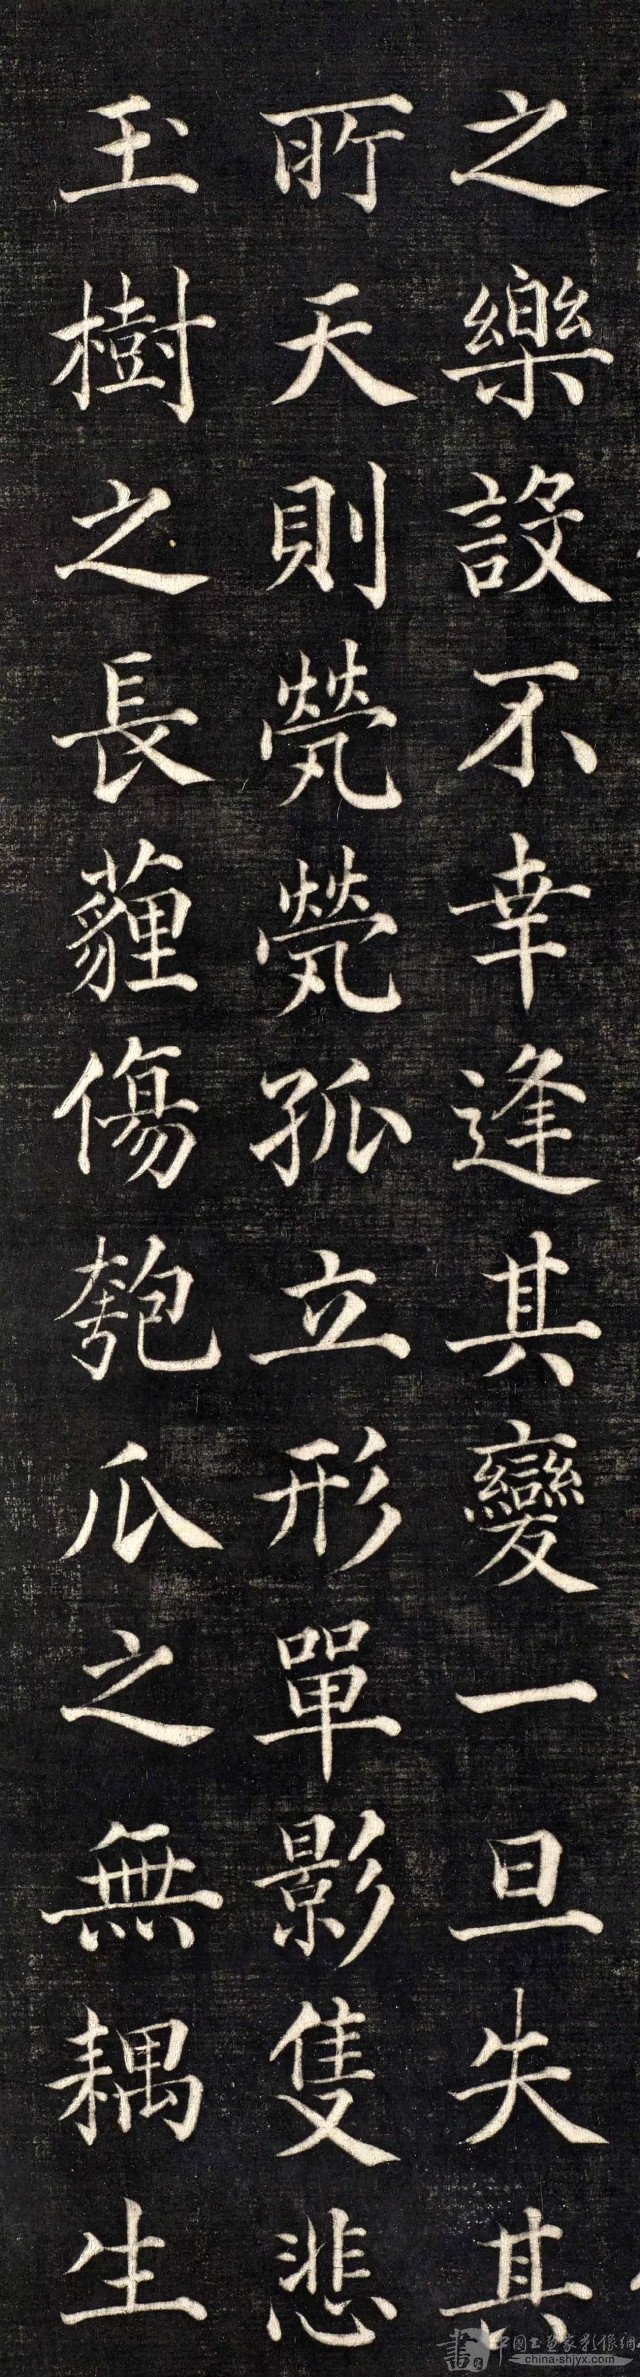 之樂設不幸逢其變一旦失其
所天則煢煢孤立形單影隻悲
玉樹之長薶傷匏瓜之無耦生
書 中國書畫家影像網
china-shjyx.com